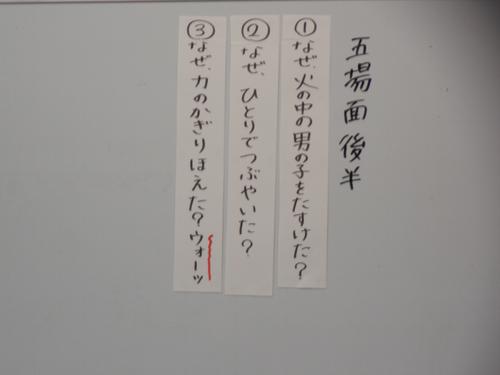 五場面後半
①なぜ、火の中の男の子をたすけた？
②なぜ、ひとりでつぶやいた？
③なぜ、力のかぎりほえた？ウォーッ